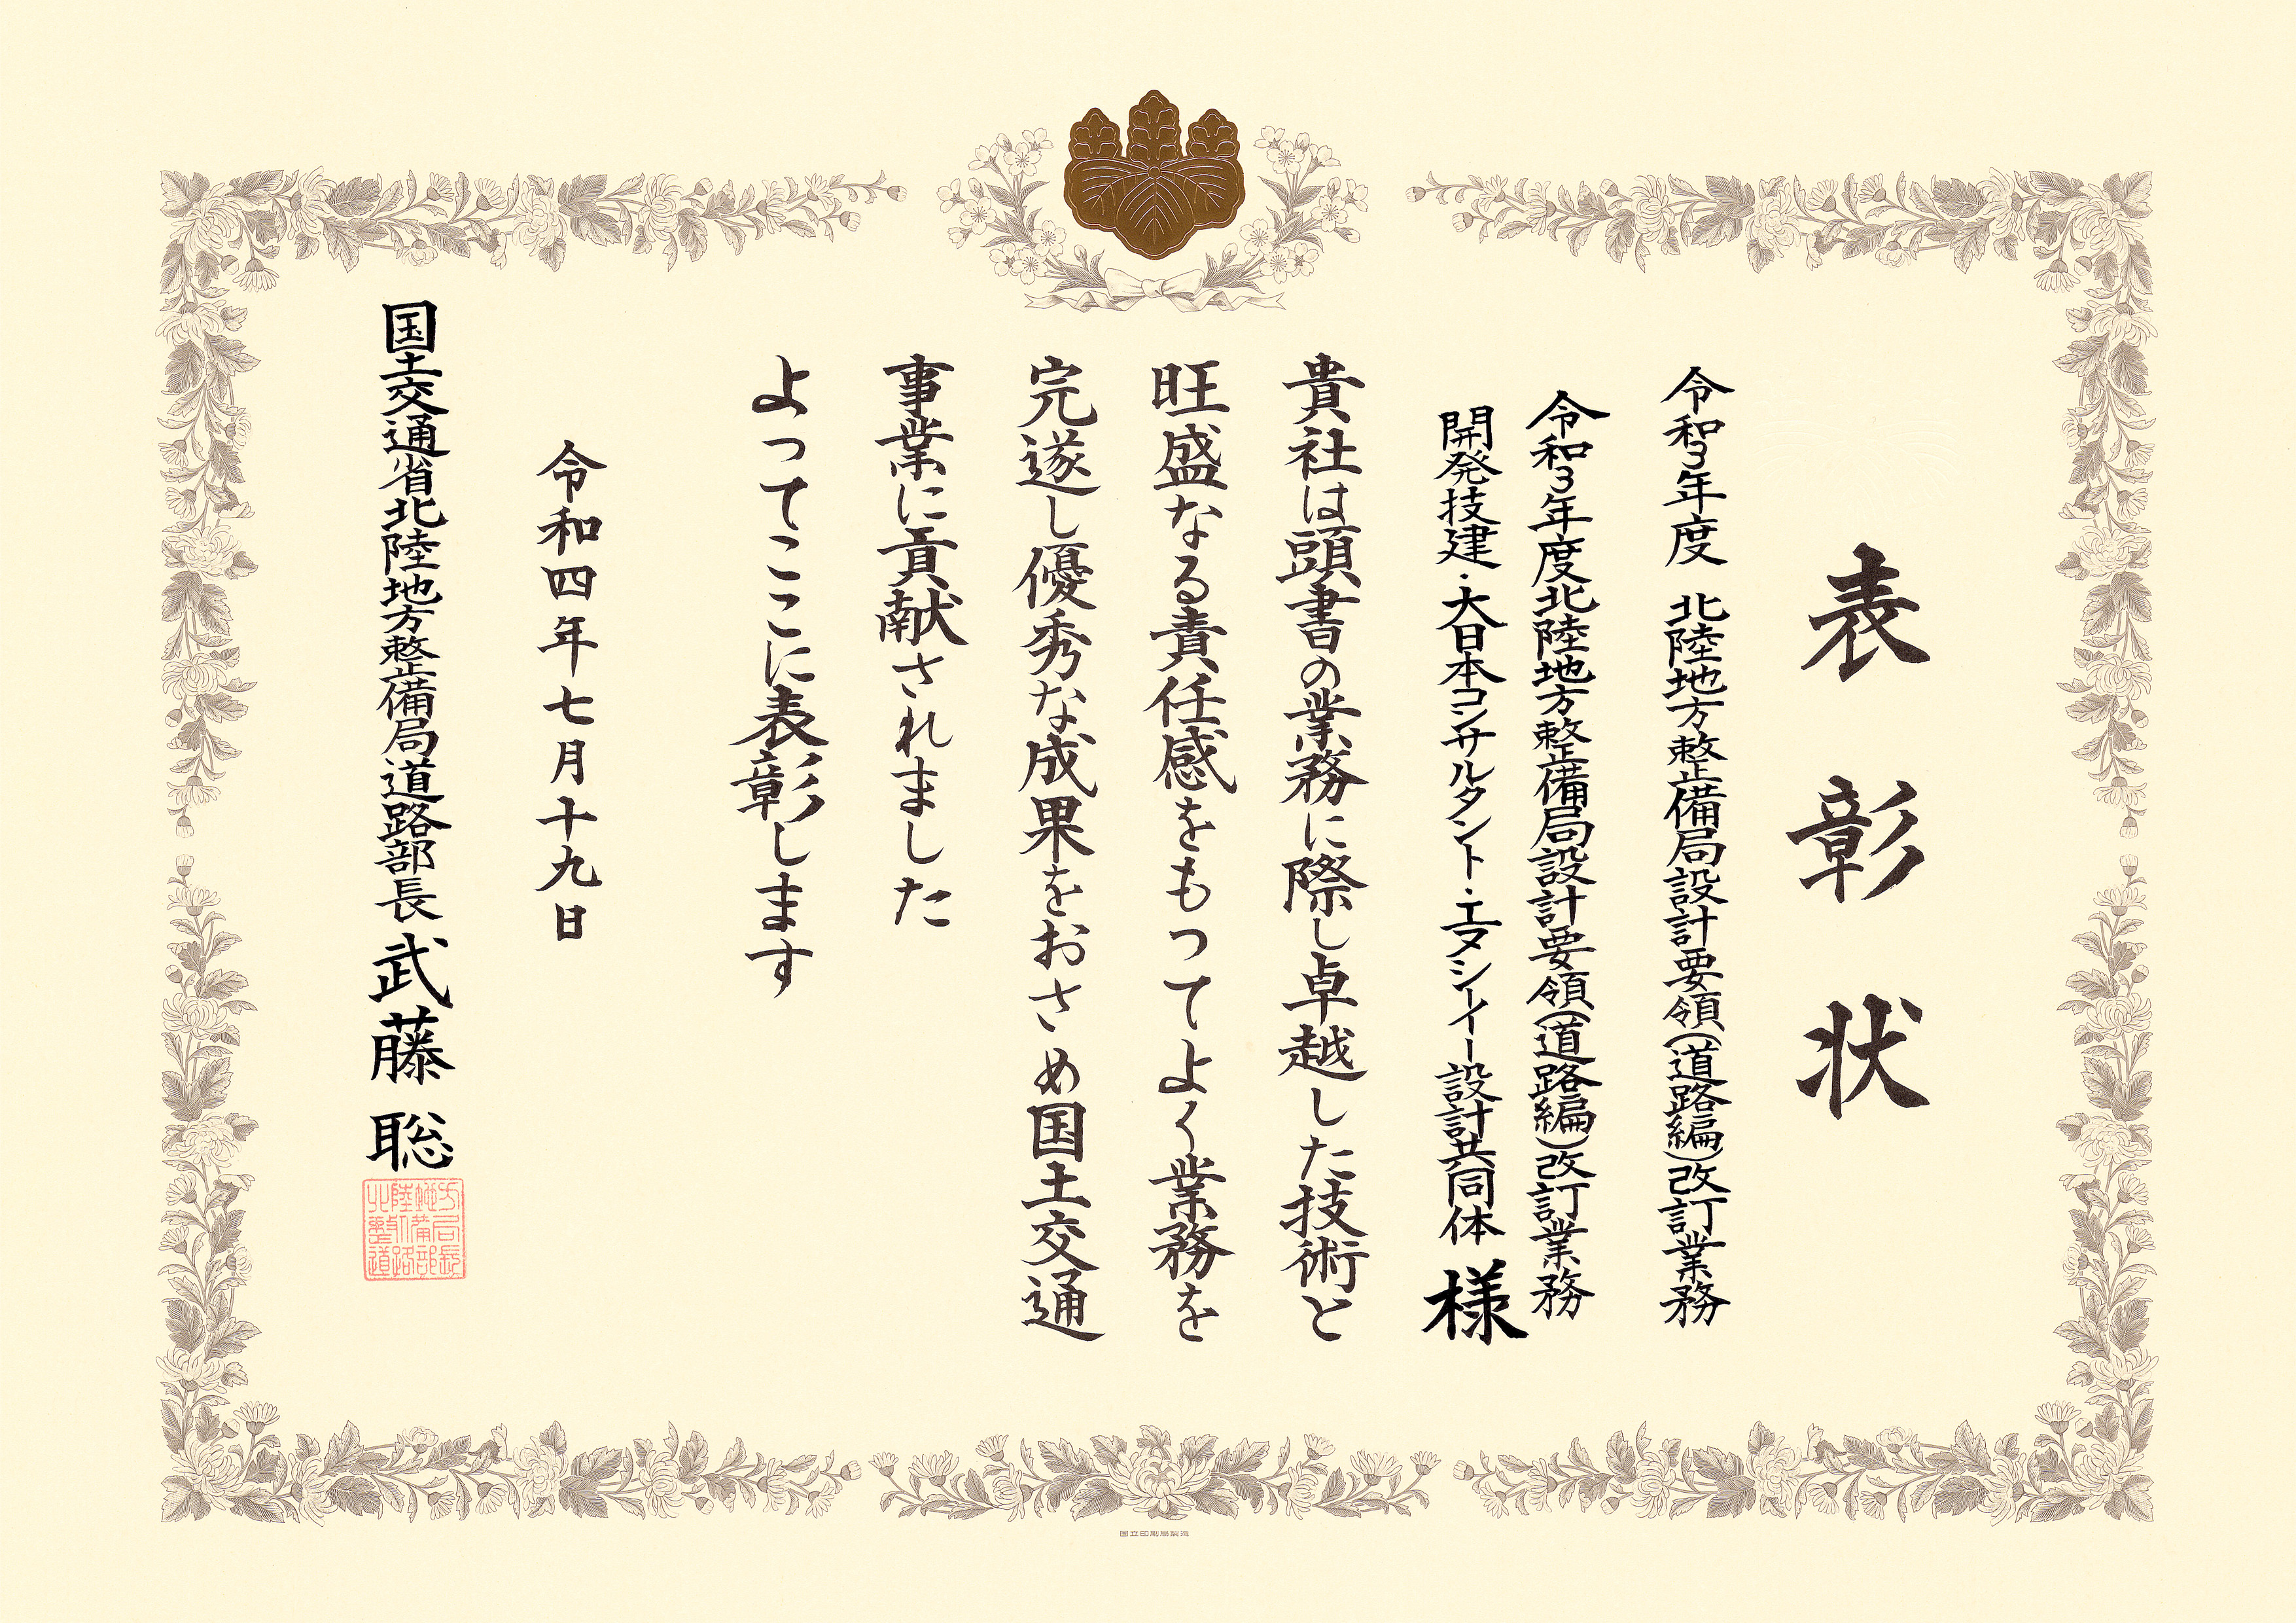 表彰状
令和3年度 北陸地方整備局設計要領(道路編)改訂業務
令和3年度北陸地方整備局設計要領(道路編)改訂業務
開発技建・大日本コンサルタント・エヌシーイー設計共同体 様
貴社は頭書の業務に際し卓越した技術と
旺盛なる責任感をもつてよく業務を
完遂し優秀な成果をおさめ国土交通
事業に貢献されました
よってここに表彰します
令和四年七月十九日
国土交通省北陸地方整備局道路部長 武藤聡
北陸地方
整備局
道路部長
国立印刷局製造